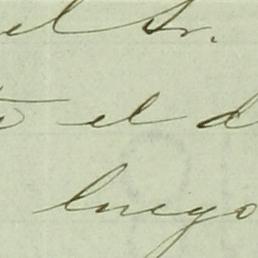 el Sr.
el d
luego